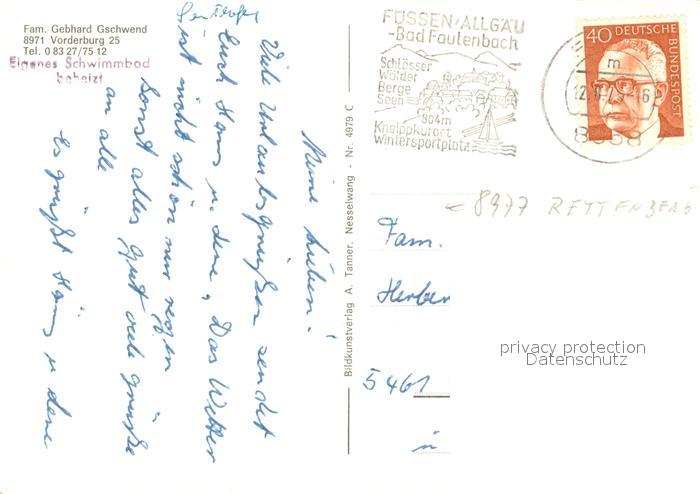 Fam. Gebhard Gschwend
8971 Vorderburg 25
Tel. 0 83 27/75 12
Eigenes Schwimmbad
beheizt
Meine Lieben!
Viele Urlaubsgrüßen sendet
Euch Hans u. Lene, Das Wetter
ist nicht schön nur regen
sonst alles gut viele grüße
an alle
Es grüßt Hans u Lene
Bildkunstverlag A. Tanner, Nesselwang - Nr. 4979 C
FÜSSEN/ALLGÄU
-Bad Faulenbach
Schlösser
Wälder
Berge
Seen
804m
Kneippkurort
Wintersportplatz
m
12.
8958
40 DEUTSCHE
BUNDESPOST
8977 RETTENBERG
Fam.
Herber
5461
in
privacy protection
Datenschutz